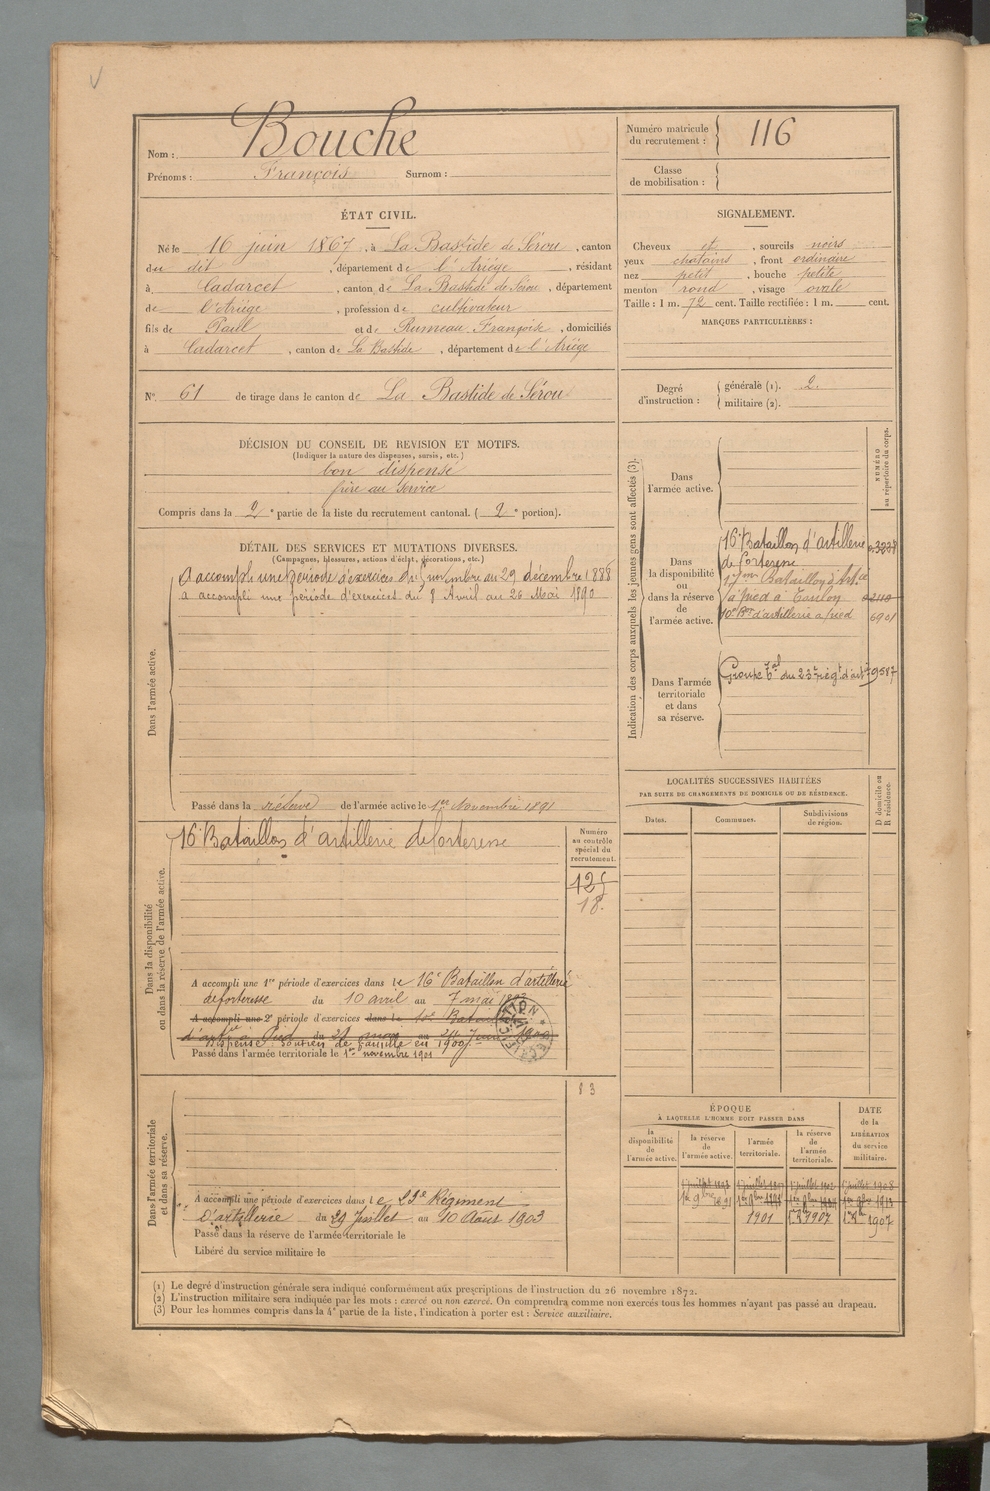 Nom : Bouche
Prénoms : François Surnom :
Numéro matricule du recrutement : 116
Classe de mobilisation :
ÉTAT CIVIL.
Né le 16 juin 1867, à La Bastide de Sérou, canton
du dit, département de l'Ariége, résidant
à Cadarcet, canton de La Bastide de Sérou, département
de l'Ariége, profession de cultivateur
fils de Paul et de Rumeau Françoise, domiciliés
à Cadarcet, canton de La Bastide, département de l'Ariége
SIGNALEMENT.
Cheveux et, sourcils noirs
yeux chatains, front ordinaire
nez petit, bouche petite
menton rond, visage ovale
Taille : 1 m. 72 cent. Taille rectifiée : 1 m. cent.
MARQUES PARTICULIÈRES :
N° 61 de tirage dans le canton de La Bastide de Sérou
Degré d'instruction : générale (1). 2.
militaire (2).
DÉCISION DU CONSEIL DE REVISION ET MOTIFS.
(Indiquer la nature des dispenses, sursis, etc.)
bon dispensé
frère au service
Compris dans la 2e partie de la liste du recrutement cantonal. (2e portion).
DÉTAIL DES SERVICES ET MUTATIONS DIVERSES.
(Campagnes, blessures, actions d'éclat, décorations, etc.)
Dans l'armée active.
A accompli une période d'exercices du 5 novembre au 29 décembre 1888
a accompli une période d'exercices du 8 Avril au 26 Mai 1890
Passé dans la réserve de l'armée active le 1er Novembre 1891
Indication des corps auxquels les jeunes gens sont affectés (3).
NUMÉRO au répertoire du corps.
Dans l'armée active.
Dans la disponibilité ou dans la réserve de l'armée active.
16e Bataillon d'artillerie
de forteresse
17me Bataillon d'Artie
à pied à Toulon
10e Bon d'artillerie à pied 6901
Dans l'armée territoriale et dans sa réserve.
Groupe tal du 23e régt d'artie 9587
LOCALITÉS SUCCESSIVES HABITÉES
PAR SUITE DE CHANGEMENTS DE DOMICILE OU DE RÉSIDENCE.
Dates. Communes. Subdivisions de région. D domicile ou R résidence.
Dans la disponibilité ou dans la réserve de l'armée active.
16e Bataillon d'artillerie de forteresse
Numéro au contrôle spécial du recrutement.
125
18.
A accompli une 1re période d'exercices dans le 16e Bataillon d'artillerie
de forteresse du 10 avril au 7 mai
A accompli une 2e période d'exercices dans le 10e
d'artie à Pied du 28 mai au
Dispensé Soutien de famille en 1900
Passé dans l'armée territoriale le 1er novembre 1901
Dans l'armée territoriale et dans sa réserve.
83
A accompli une période d'exercices dans le 23e Régiment
d'artillerie du 29 Juillet au 10 Août 1903
Passé dans la réserve de l'armée territoriale le
Libéré du service militaire le
ÉPOQUE
À LAQUELLE L'HOMME DOIT PASSER DANS
DATE de la LIBÉRATION du service militaire.
la disponibilité de l'armée active. la réserve de l'armée active. l'armée territoriale. la réserve de l'armée territoriale.
1er 9bre 1891
1901 1907 1907
(1) Le degré d'instruction générale sera indiqué conformément aux prescriptions de l'instruction du 26 novembre 1872.
(2) L'instruction militaire sera indiquée par les mots : exercé ou non exercé. On comprendra comme non exercés tous les hommes n'ayant pas passé au drapeau.
(3) Pour les hommes compris dans la 4e partie de la liste, l'indication à porter est : Service auxiliaire.